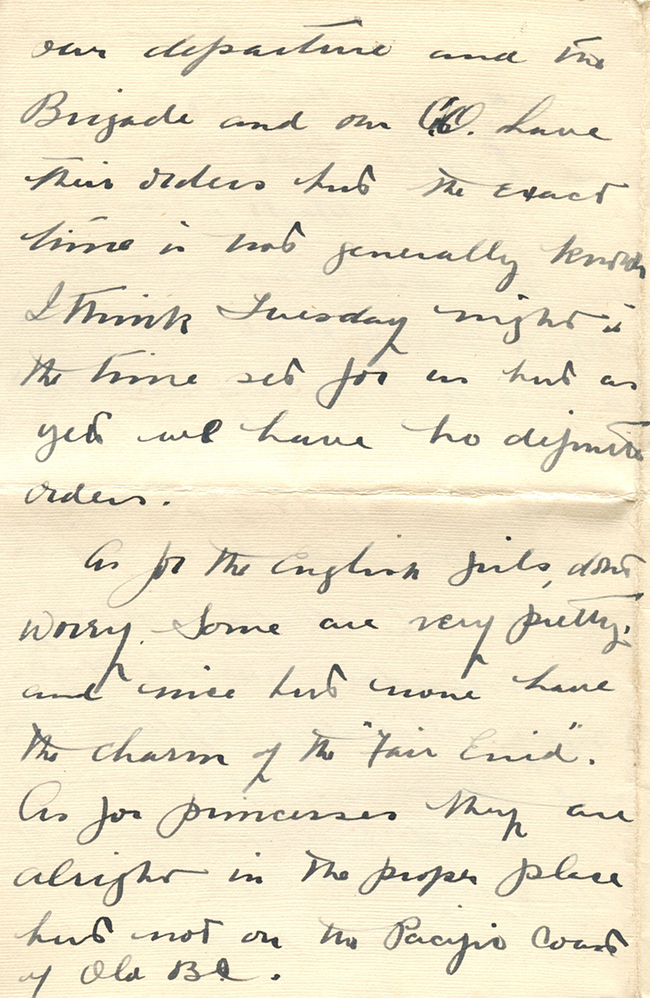 our departure and the
Brigade and our C.O. have
their orders but the exact
time is not generally known
I think Tuesday night is
the time set for us but as
yet we have no definite
orders.
As for the English girls, dont
worry. Some are very pretty,
and nice but none have
the charm of the "Fair Enid".
As for princesses they are
alright in the proper place
but not on the Pacific Coast
of Old BC.